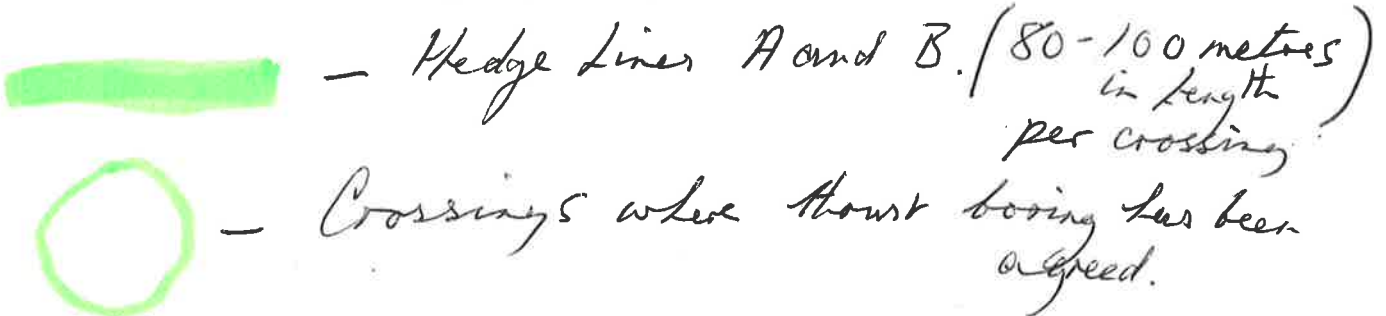 — Hedge Lines A and B. (80-100 metres
in Length
per crossing)
— Crossings where thrust boring has been
agreed.